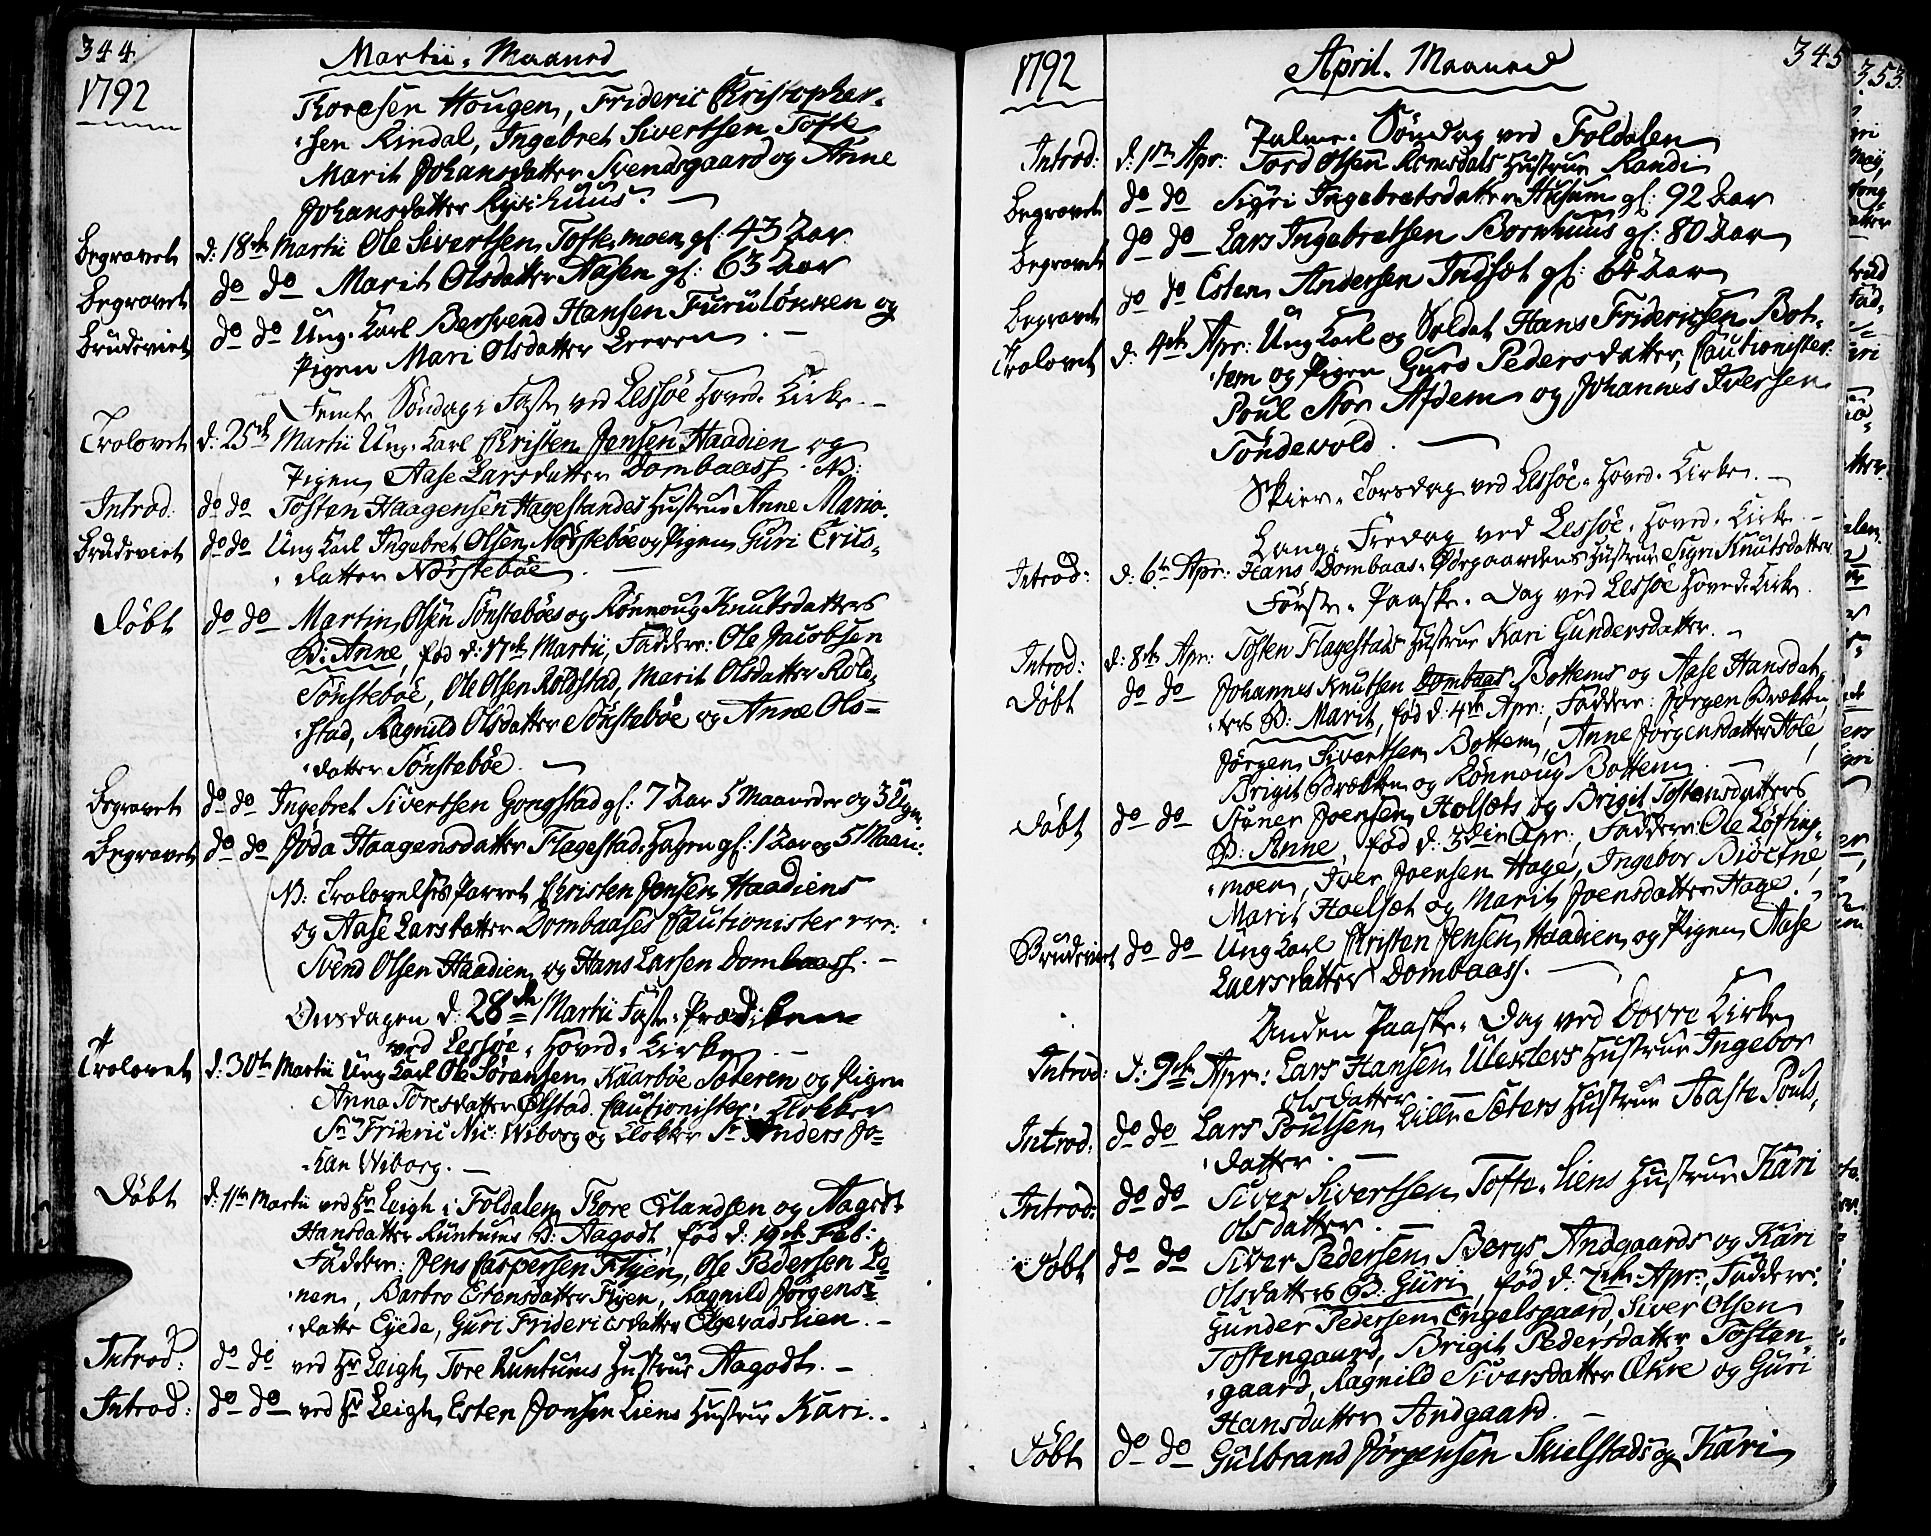 344.
Martii. Maaned
1792
Thoresen Hougen, Frideric Christopher-
sen Rindal, Ingebret Sivertsen Tofte
Marit Johansdatter Svendsgaard og Anne
Johansdatter
Begravet d: 18de Martii Ole Sivertsen Toftemoen gl: 43 Aar
Begravet do do Marit Olsdatter Aasen gl: 63 Aar
Brudeviet do do Ung Karl Bersvend Hansen Furuløkken og
Pigen Mari Olsdatter Leeren. —
Femte Søndag i Faste ved Lessøe Hoved-Kirke. —
Trolovet d: 25de Martii Ung-Karl Christen Jensen Haadien og
Pigen Aase Larsdatter Dombaas. NB:
Introd: do do Tosten Haagensen Hagestandes Hustrue Anne Maria.
Brudeviet do do Ung Karl Ingebret Olsen Nørstebøe og Pigen Guri Erics-
datter Nørstebøe. —
Døbt do do Martin Olsen Sønstebøes og Rønnoug Knutsdatters
B: Anne, fød d: 17de Martii, Faddere: Ole Jacobsen
Sønstebøe, Ole Olsen Roldstad, Marit Olsdatter Rold-
stad, Ragnild Olsdatter Sønstebøe og Anne Ols-
datter Sønstebøe. —
Begravet do do Ingebret Sivertsen Gongstad gl: 7 Aar 5 Maaneder og 3 Ugr.
Begravet do do Jøda Haagensdatter Flagestad-Hagen gl: 1 Aar og 5 Maan:
NB: Trolovelses Parret Christen Jensen Haadiens
og Aase Larsdatter Dombaases Cautionister ere:
Svend Olsen Haadien og Hans Larsen Dombaas. —
Onsdagen d: 28de Martii Faste-Prædiken
ved Lessøe-Hoved-Kirke. —
Trolovet d: 30te Martii Ung Karl Ole Sørensen Kaarbøe Søteren og Pigen
Anna Toresdatter Ølstad. Cautionister: Klokker
Sr Frideric Nic: Wiborg og Klokker Sr Anders Jo-
han Wiborg. —
Døbt d: 11te Martii ved Hr Leigh i Foldalen Thore Erlandsen og Aagodt
Hansdatter Runtums B: Aagodt, fød d: 19de Feb:
Faddere: Jens Caspersen Flyen, Ole Pedersen Lo-
nen, Barbro Estensdatter Flyen, Ragnild Jørgens-
datter Eyede, Guri Fridericsdatter Elgevadslien. —
Introd: do do ved Hr Leigh, Tore Runtums Hustrue Aagodt. —
Introd: do do ved Hr Leigh, Esten Jonsen Liens Hustrue Kari. —
345
April. Maaned
1792
Palme-Søndag ved Foldalen
Introd: d: 1te Apr: Tord Olsen Romsdals Hustrue Randi
Begravet do do Sigri Ingebretsdatter Husum gl: 92 Aar
Begravet do do Lars Ingebretsen Bornhuus gl: 80 Aar
Begravet do do Esten Andersen Indset gl: 64 Aar
Trolovet d: 4de Apr: Ung Karl og Soldat Hans Friderichsen Bot-
tem og Pigen Guro Pedersdatter, Cautionister:
Poul Stor Afdem og Johannes Iversen
Tøndevold. —
Skier-Torsdag ved Lessøe-Hoved-Kirke. —
Lang-Fredag ved Lessøe-Hoved-Kirke. —
Introd: d: 6te Apr: Hans Dombaas-Øvrgaardens Hustrue Sigri Knutsdatter
Første-Paaske-Dag ved Lessøe Hoved-Kirke.
Introd: d: 8de Apr: Tosten Flagestads Hustrue Kari Gundersdatter. —
Døbt do do Johannes Knutsen Dombaas Bottems og Aase Hansdat-
ters B: Marit, fød d: 4de Apr:, Faddere: Jørgen Brækken,
Jørgen Sivertsen Bottem, Anne Jørgensdatter Hole,
Brigit Brækken og Rønnoug Bottem. —
Døbt do do Stener Joensen Holsets og Brigit Tostensdatters
B: Anne, fød d: 3die Apr:, Faddere: Ole Løfting-
moen, Iver Joensen Hage, Ingebor
Marit Hoelset og Marit Joensdatter Hage. —
Brudeviet do do Ung Karl Christen Jensen Haadien og Pigen Aase
Laersdatter Dombaas. —
Anden Paaske-Dag ved Dovre Kirke
Introd: d: 9de Apr: Lars Hansen Ulekleivs Hustrue Ingebor
Olsdatter. —
Introd: do do Lars Poulsen Lille-Sæters Hustrue Aaste Pouls-
datter. —
Introd: do do Siver Sivertsen Tofte-Liens Hustrue Kari
Olsdatter. —
Døbt do do Siver Pedersen Bergs Andgaards og Kari
Olsdatters B: Guri, fød d: 7de Apr:, Faddere:
Gunder Pedersen Engelsgaard, Siver Olsen
Tostengaard, Brigit Pedersdatter Tosten-
gaard, Ragnild Siversdatter Ekre og Guri
Hansdatter Andgaard. —
Døbt do do Gulbrand Jørgensen Skielstads og Kari
353.